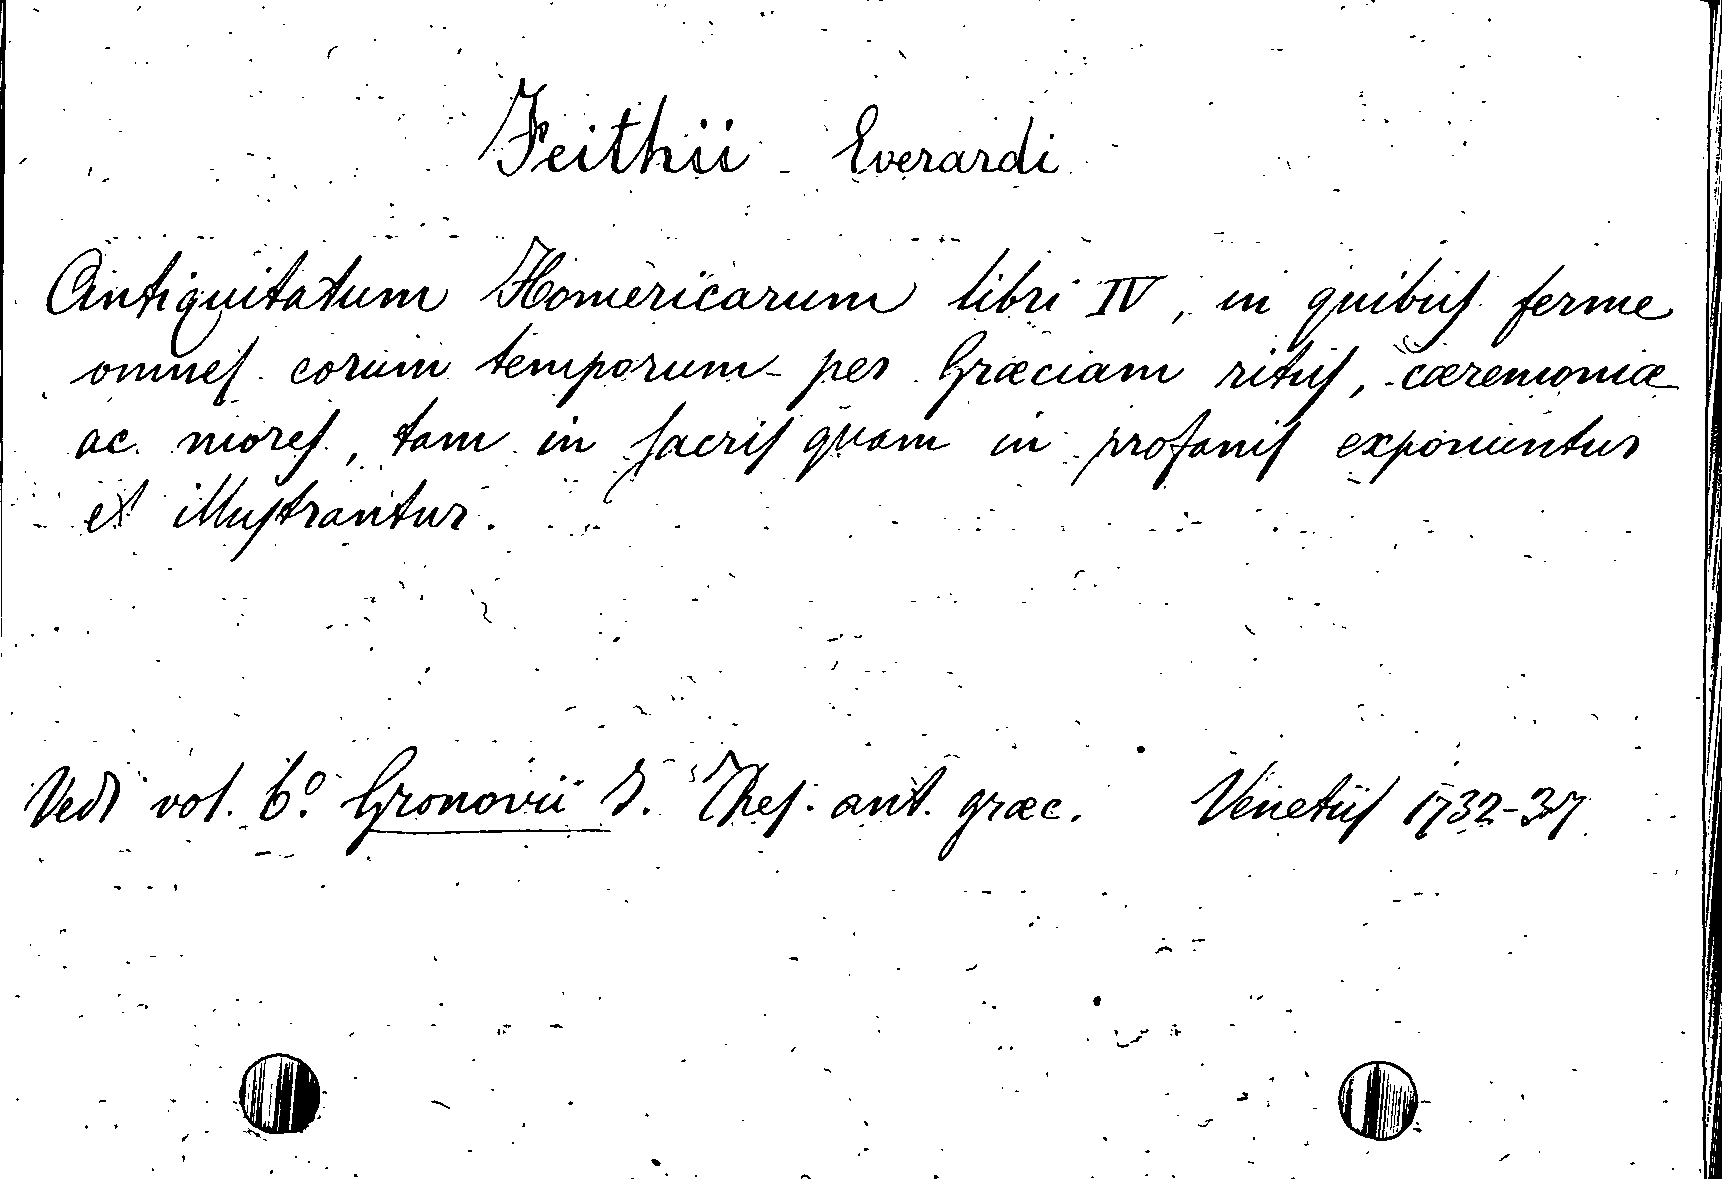 Feithii Everardi
Antiquitatum Homericarum libri IV, in quibus ferme
omnes eorum temporum per Græciam ritus, cæremoniæ
ac mores, tam in sacris quam in profanis exponuntur
et illustrantur.
Vedi vol. 6º Gronovii J. Thes. ant. græc. Venetiis 1732-37